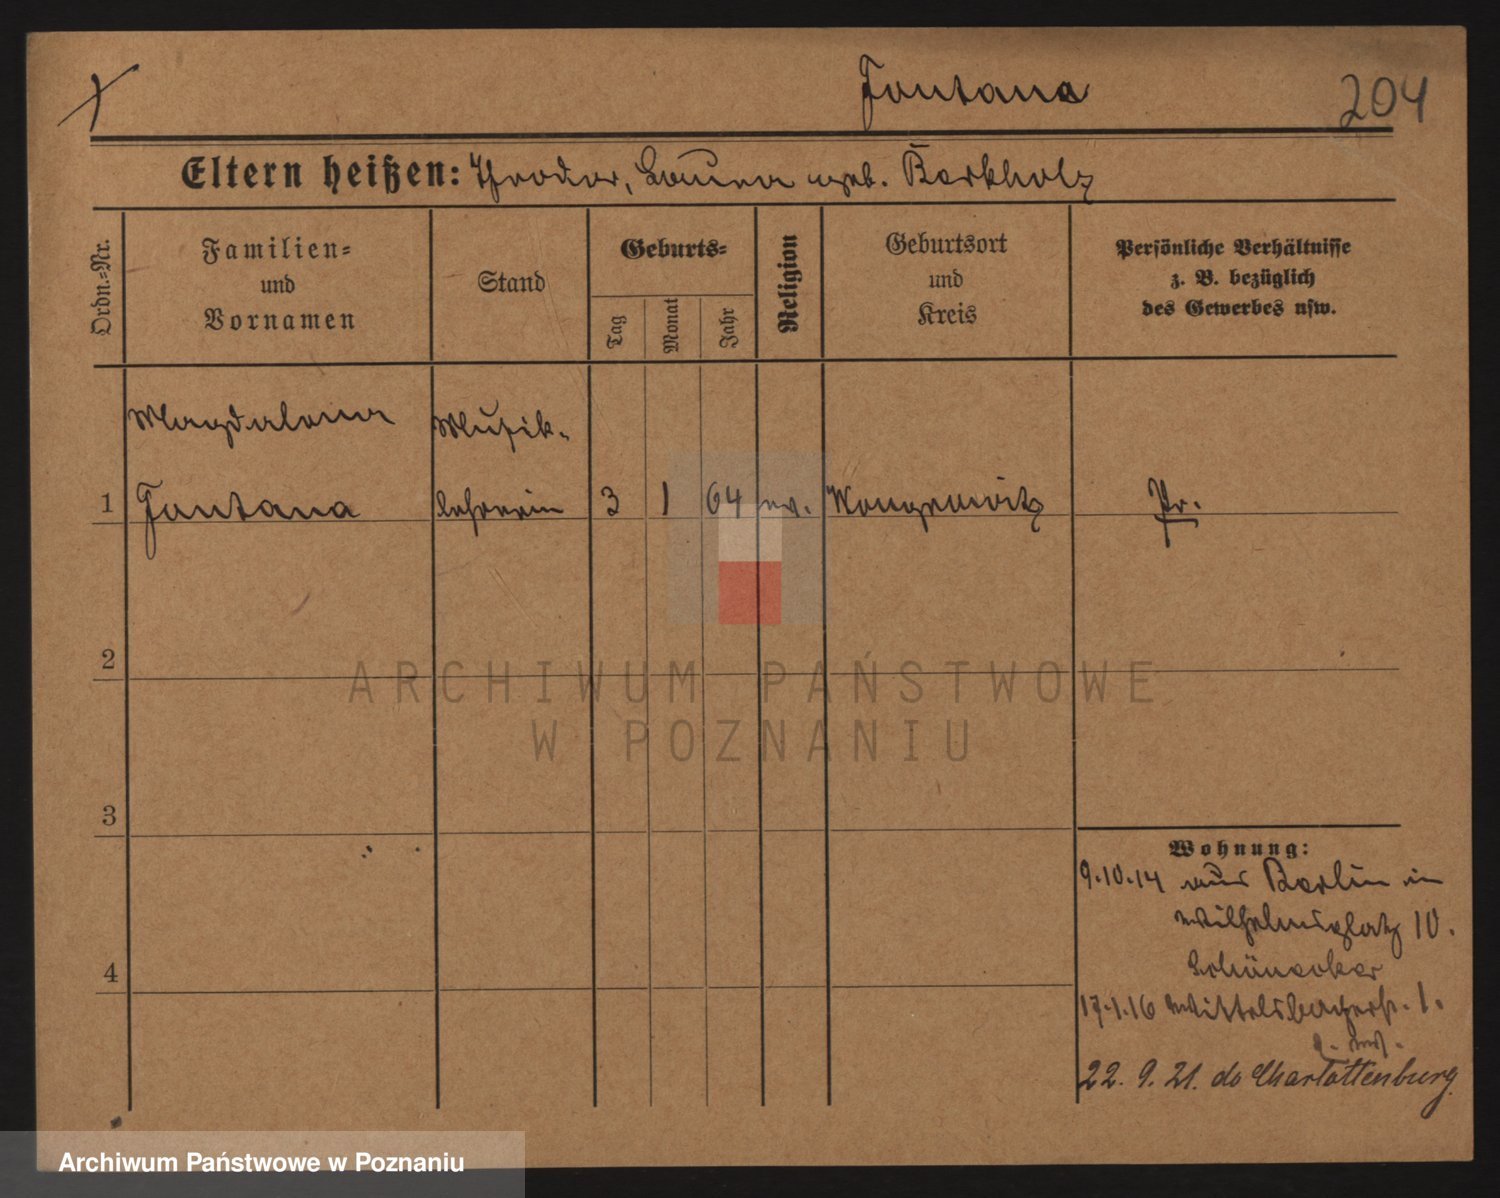 Fontana
204
Eltern heißen: Theodor, Laura geb. Berkholz
Ordn.=Nr.
Familien=
und
Vornamen
Stand
Geburts=
Tag
Monat
Jahr
Religion
Geburtsort
und
Kreis
Persönliche Verhältnisse
z. B. bezüglich
des Gewerbes usw.
Magdalena
Musik-
1 Fontana lehrerin 3 1 64 ev. Wongrowitz Pr.
2
3
4
Wohnung:
9.10.14 aus Berlin in
Wilhelmsplatz 10.
Schönecker
17.1.16 Wittelsbacherst. 1.
22. 9. 21. do Charlottenburg.
ARCHIWUM PAŃSTWOWE
W POZNANIU
Archiwum Państwowe w Poznaniu